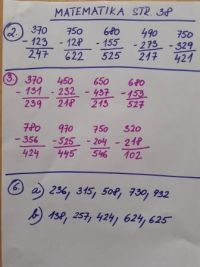 MATEMATIKA STR. 38
2. 370 750 680 490 750
-123 -128 -155 -273 -329
247 622 525 217 421
3. 370 450 650 680
-131 -232 -437 -153
239 218 213 527
780 970 750 320
-356 -525 -204 -218
424 445 546 102
6. a) 236, 315, 508, 730, 932
b) 138, 257, 424, 624, 625